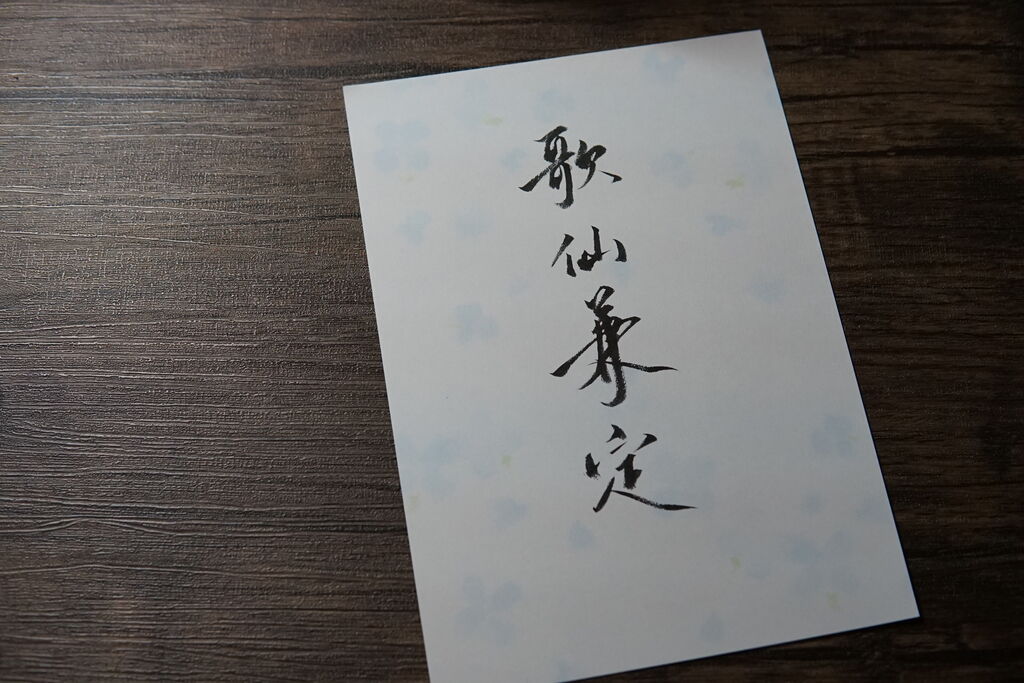 歌仙兼定